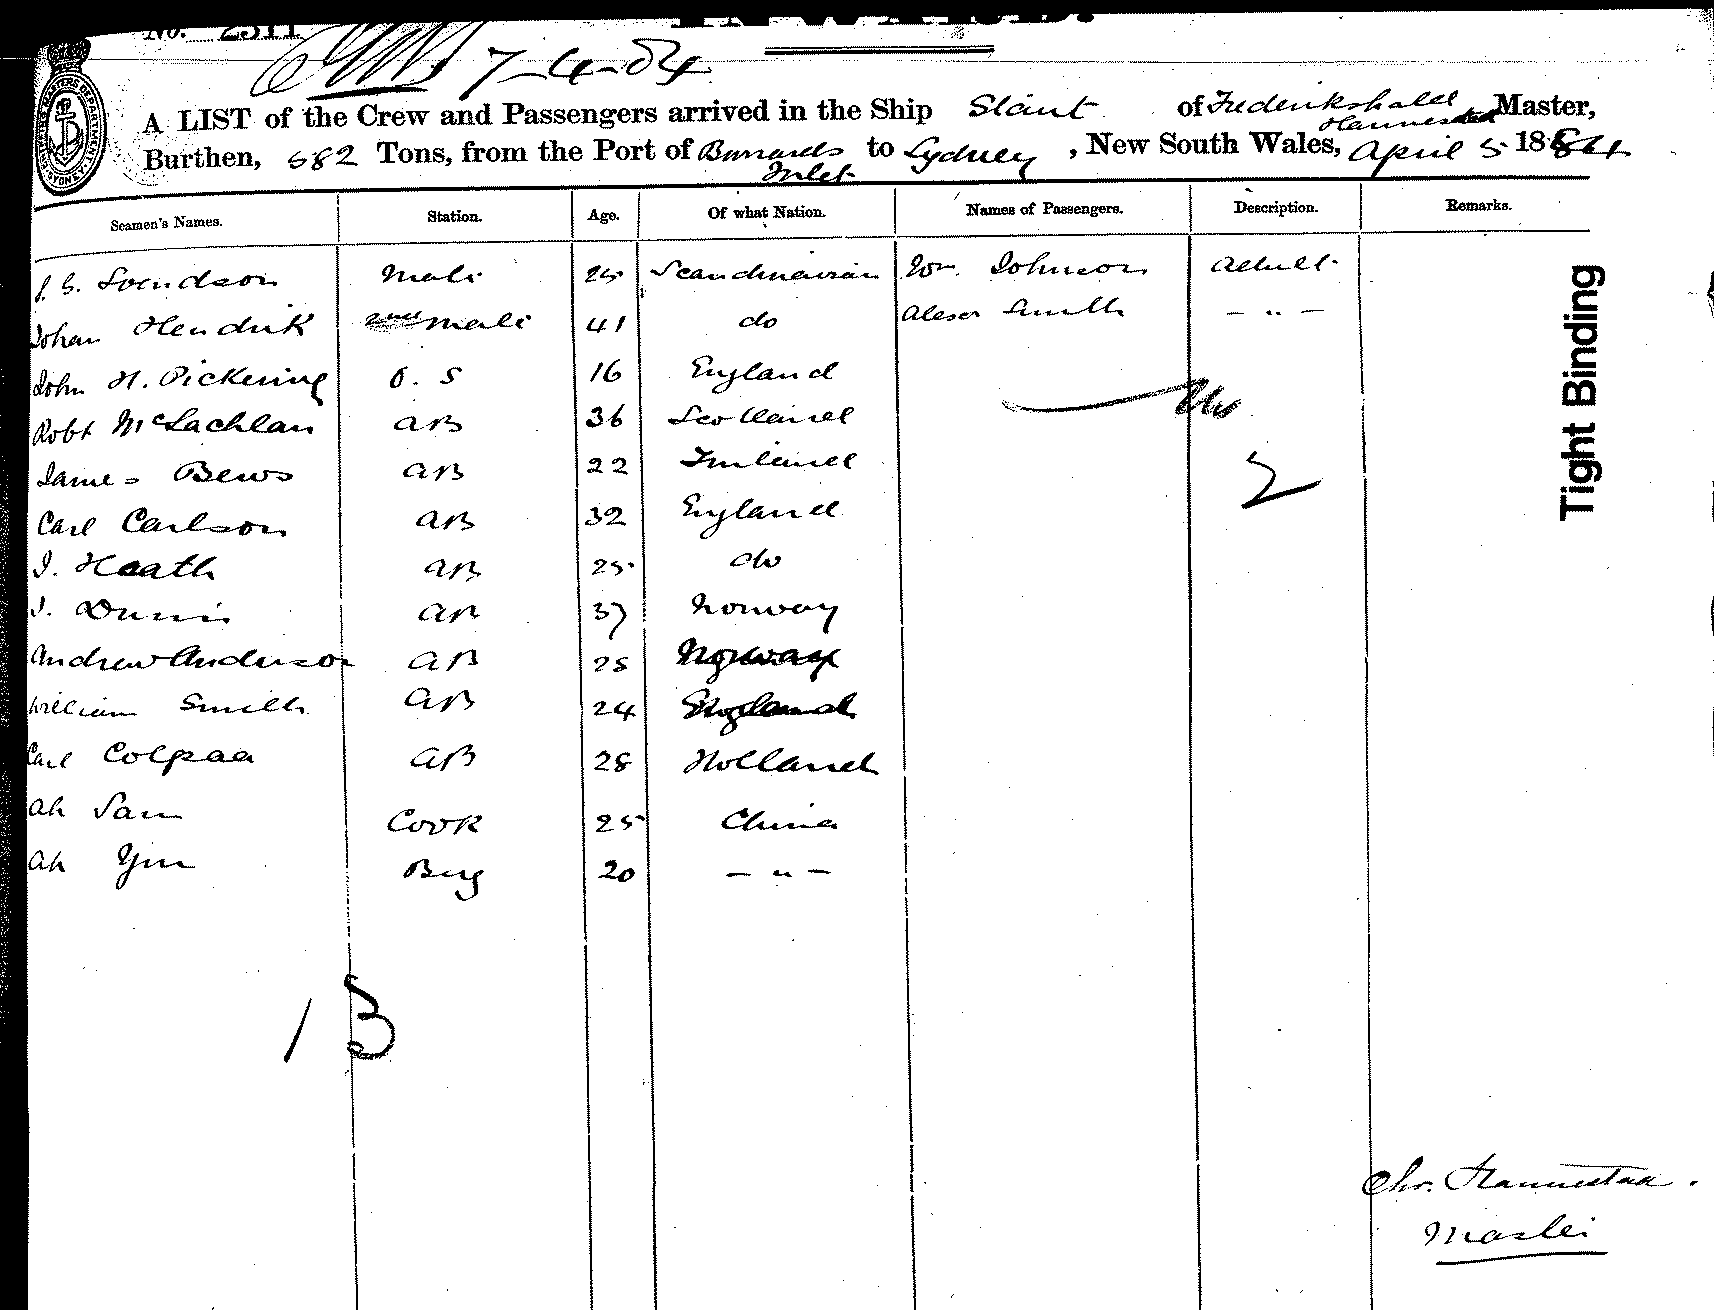 No. 2511
7-4-84
A LIST of the Crew and Passengers arrived in the Ship Staut of Frederikshald, Hannestad Master,
Burthen, 582 Tons, from the Port of Burrards Inlet to Sydney, New South Wales, April 5 1884
Seamen's Names. Station. Age. Of what Nation. Names of Passengers. Description. Remarks.
Svendson Mate 25 Scandinavian Wm. Johnson Adult
Johan Hendrik 2nd Mate 41 do Alexr Smith - " -
John H. Pickering O. S 16 England
Robt McLachlan AB 36 Scotland
James Bews AB 22
Carl Carlson AB 32 England
J. Heath AB 25 do
J. AB 37 Norway
2
Andrew Anderson AB 28 Norway
William Smith AB 24 England
Carl Colpaa AB 28 Holland
Ah Sam Cook 25 China
Ah Yim Boy 20 - " -
13
Chr. Hannestad.
Master
Tight Binding